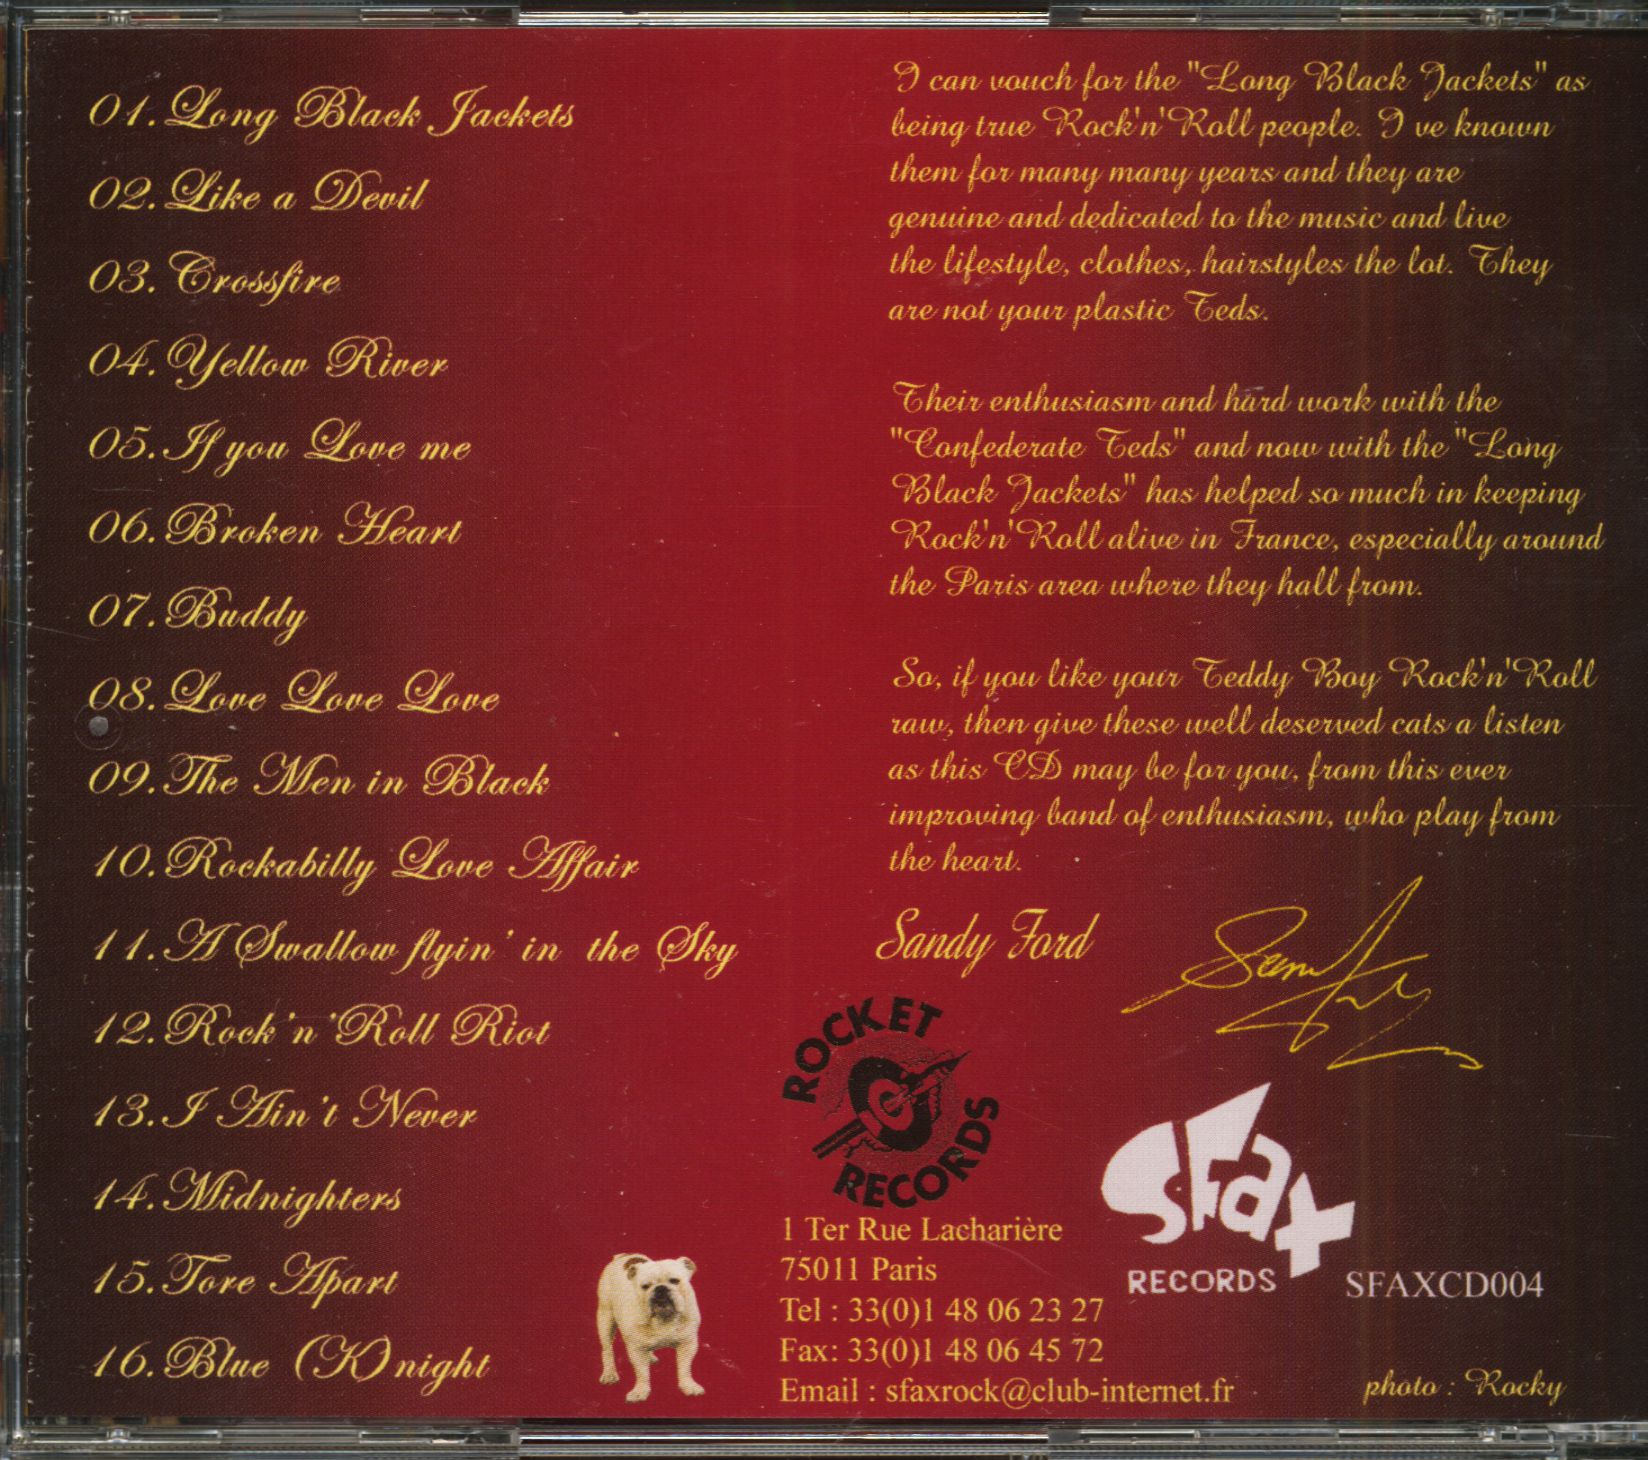 01. Long Black Jackets
02. Like a Devil
03. Crossfire
04. Yellow River
05. If you Love me
06. Broken Heart
07. Buddy
08. Love Love Love
09. The Men in Black
10. Rockabilly Love Affair
11. A Swallow flyin' in the Sky
12. Rock'n'Roll Riot
13. I Ain't Never
14. Midnighters
15. Tore Apart
16. Blue (K)night
I can vouch for the "Long Black Jackets" as
being true Rock'n'Roll people. I ve known
them for many many years and they are
genuine and dedicated to the music and live
the lifestyle, clothes, hairstyles the lot. They
are not your plastic Teds.
Their enthusiasm and hard work with the
"Confederate Teds" and now with the "Long
Black Jackets" has helped so much in keeping
Rock'n'Roll alive in France, especially around
the Paris area where they hall from.
So, if you like your Teddy Boy Rock'n'Roll
raw, then give these well deserved cats a listen
as this CD may be for you, from this ever
improving band of enthusiasm, who play from
the heart.
Sandy Ford
ROCKET
RECORDS
1 Ter Rue Lacharière
75011 Paris
Tel : 33(0)1 48 06 23 27
Fax: 33(0)1 48 06 45 72
Email : sfaxrock@club-internet.fr
SFax
RECORDS
SFAXCD004
photo : Rocky